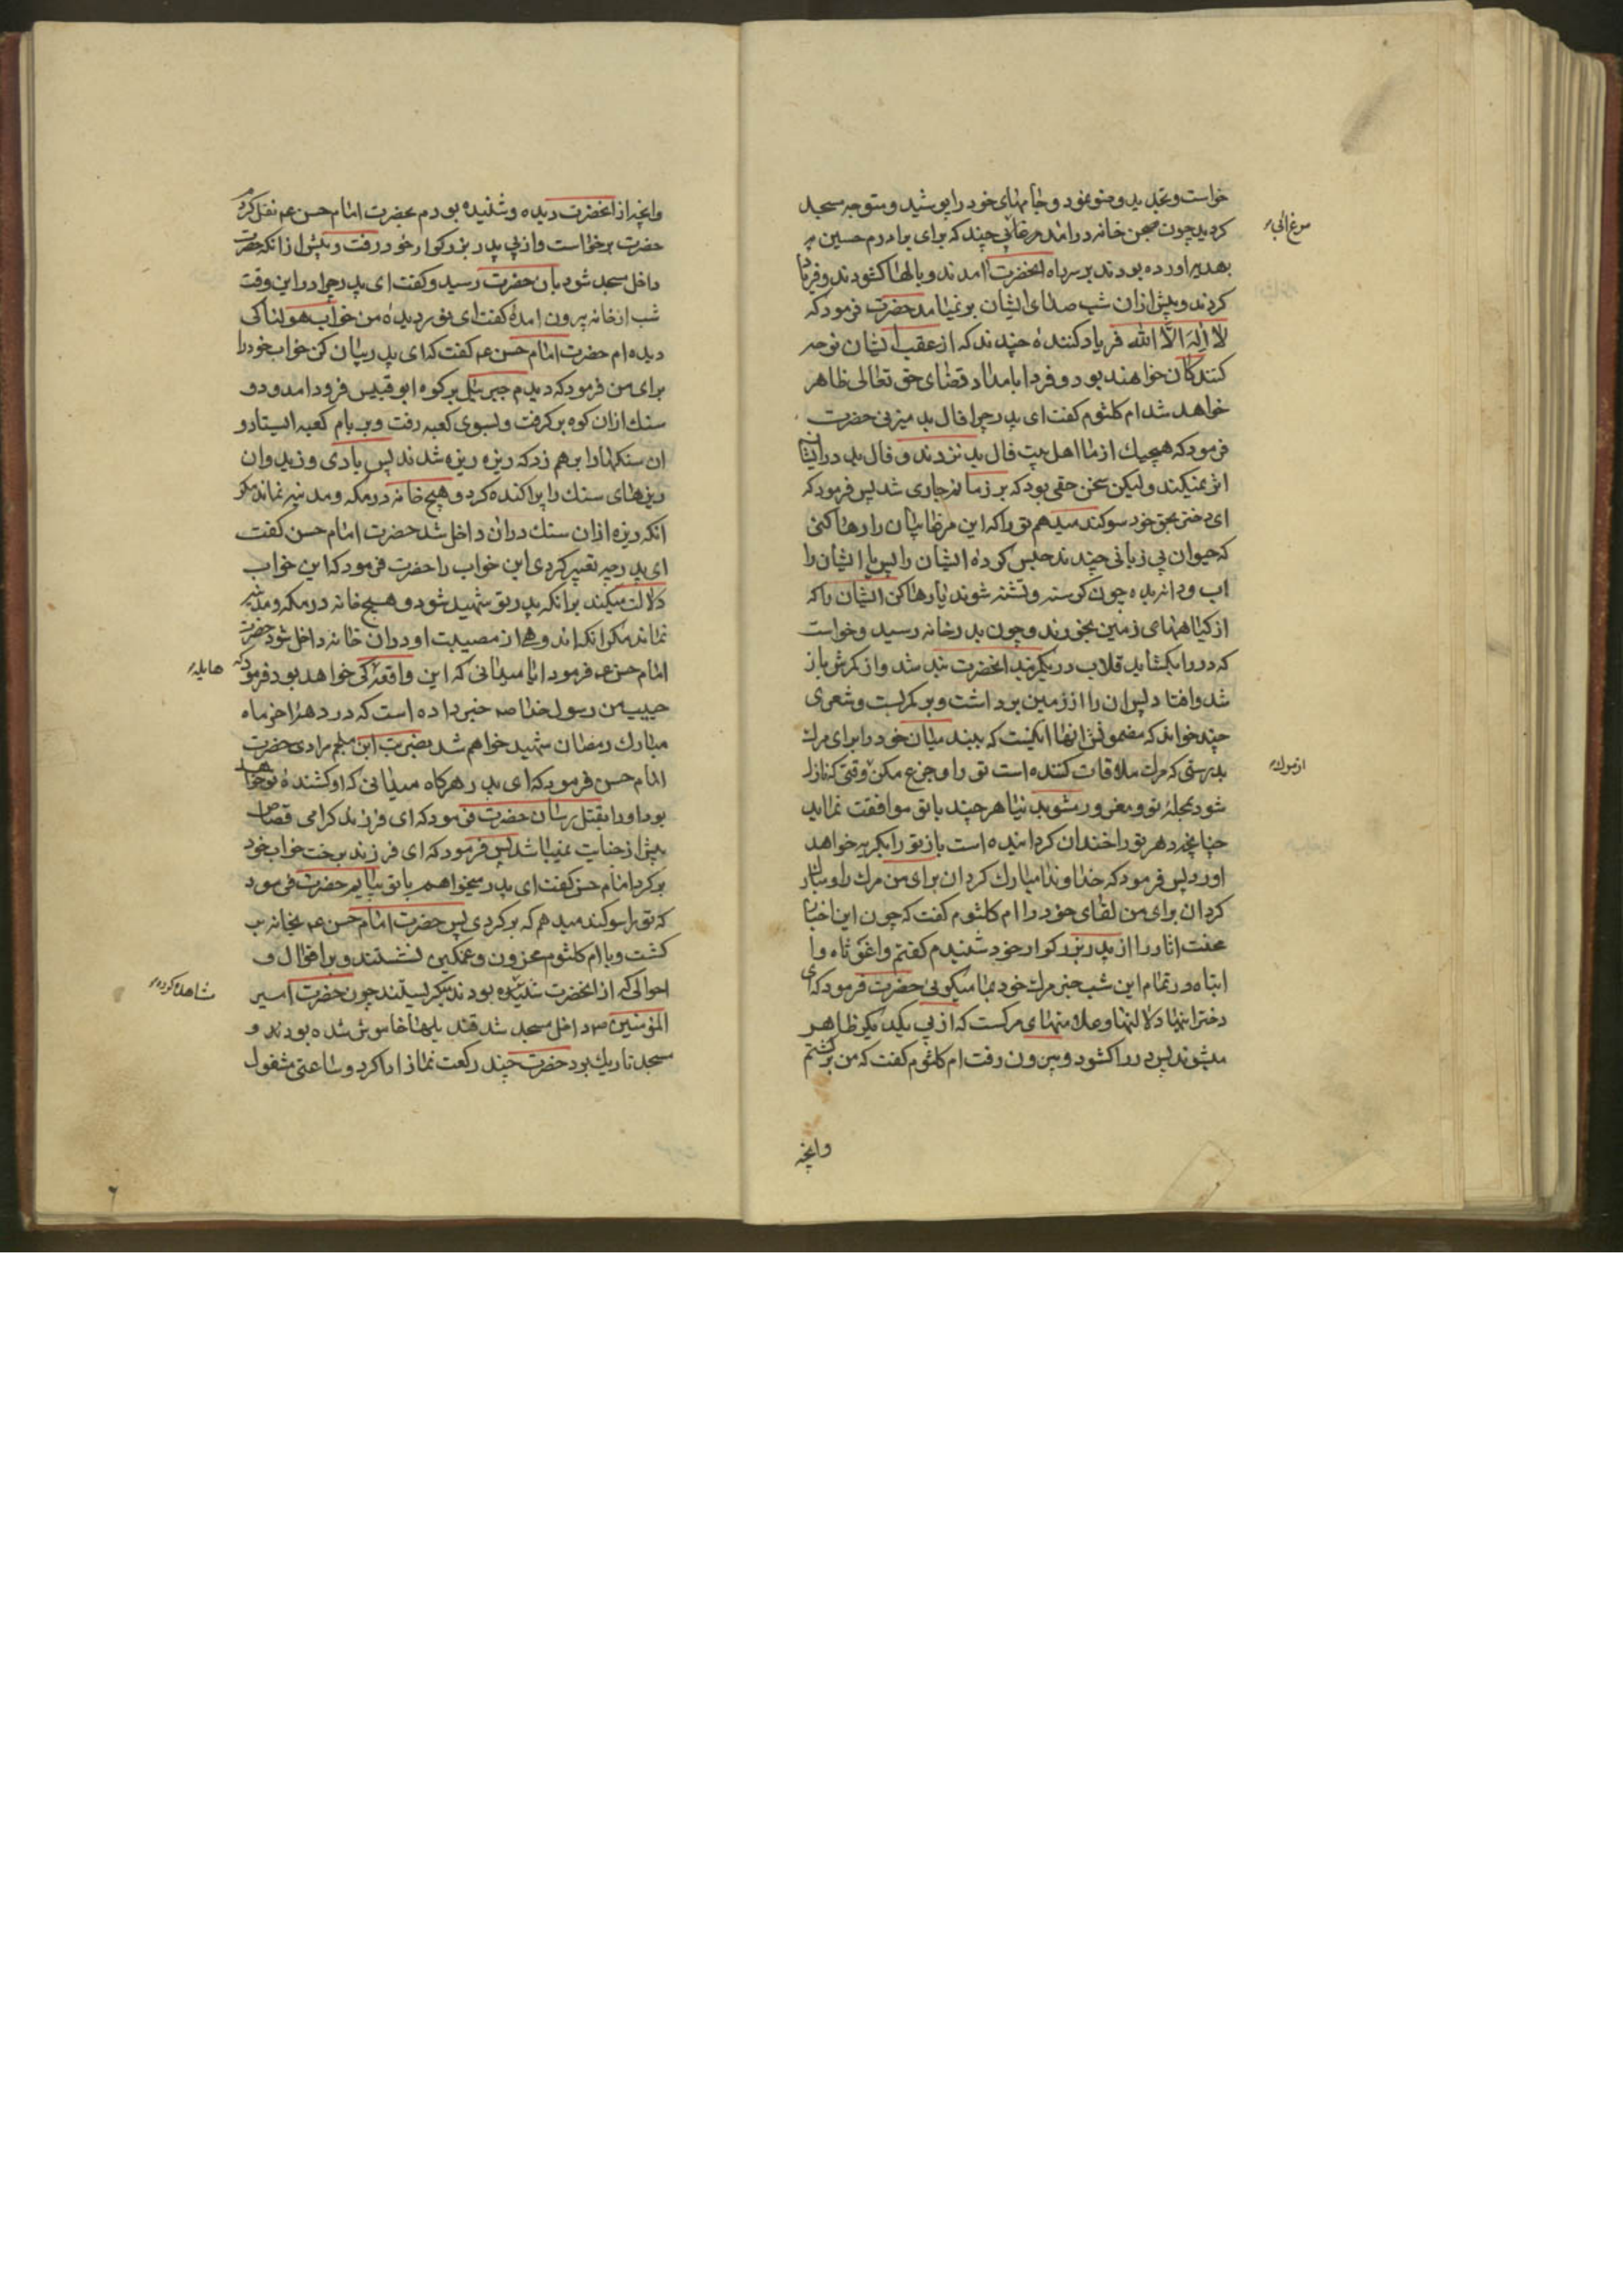 خواست و تجدید وضو نمود و جامهای خود را پوشید و متوجه مسجد
کردید چون صحن خانه در امد مرغابی چند که برای برادرم حسین
بهدیه اورده بودند بر سر راه انحضرت امدند و بالها کشودند و فریاد
کردند و پیش ازان شب صدای ایشان بر نمیامد حضرت فرمود که
لا اله الا الله فریاد کننده چندند که از عقب ایشان نوحه
کنندکان خواهند بود و فردا بامداد قضای حق تعالی ظاهر
خواهد شد ام کلثوم کفت ای پدر چرا فال بد میزنی حضرت
فرمود که هیچیك از ما اهل بیت فال بد نزدند و فال بد در ایشان
اثر نمیکند ولیکن سخن حقی بود که بر زبانم جاری شد پس فرمود که
ای دختر بحق خود سوکند میدهم تو را که این مرغابیان را رها کنی
که حیوان بی زبانی چندند حبس کرده ایشان را پس یا ایشان را
اب و دانه بده چون کرسنه و تشنه شوند یا رها کن ایشان را که
از کیاههای زمین بخورند و چون بدر خانه رسید و خواست
که در را بکشاید قلاب در بکمربند انحضرت بند شد و از کمرش باز
شد و افتاد پس ان را از زمین برداشت و بر کمر بست و شعری
چند خواند که مضمونش انها اینست که ببند میان خود را برای مرك
بدرستی که مرك ملاقات کننده است تو را و جزع مکن وقتی که نازل
شود بمحله تو و مغرور مشو بدنیا هر چند با تو موافقت نماید
چنانچه دهر تو را خندان کردانیده است باز تو را بکریه خواهد
اورد پس فرمود که خداوندا مبارك کردان برای من مرك را و مبارك
کردان برای من لقای خود را ام کلثوم کفت که چون این اخبار
محنت اثار را از پدر بزرکوار خود شنیدم کفتم واغوثاه وا
ابتاه در تمام این شب خبر مرك خود بما میکویی حضرت فرمود که ای
دختر اینها دلالتها و علامتهای مرکست که از پی یکدیکر ظاهر
میشوند پس در را کشود و بیرون رفت ام کلثوم کفت که من برکشتم
وانچه
مرغ ابی
از مرك
وانچه از انحضرت دیده و شنیده بودم بحضرت امام حسن ع نقل کردم
حضرت برخواست و از پی پدر بزرکوار خود رفت و پیش از انکه حضرت
داخل مسجد شود بان حضرت رسید و کفت ای پدر چرا در این وقت
شب از خانه بیرون امدهٔ کفت ای نور دیده من خواب هولناکی
دیده ام حضرت امام حسن ع کفت که ای پدر بیان کن خواب خود را
برای من فرمود که دیدم جبرئیل بر کوه ابو قبیس فرود امد و دو
سنك ازان کوه بر کرفت و بسوی کعبه رفت و بر بام کعبه ایستاد و
ان سنکها را بر هم زد که ریزه ریزه شدند پس بادی وزید و ان
ریزهای سنك را پراکنده کرد و هیچ خانه در مکه و مدینه نماند مکر
انکه ریزه ازان سنك دران داخل شد حضرت امام حسن کفت
ای پدر چه تعبیر کردی این خواب را حضرت فرمود که این خواب
دلالت میکند بر انکه پدر تو شهید شود و هیچ خانه در مکه و مدینه
نماند مکر انکه اندوهی از مصیبت او دران خانه داخل شود حضرت
امام حسن ع فرمود ایا میدانی که این واقعه کی خواهد بود فرمود که
حبیب من رسول خدا ص خبر داده است که در دهه اخر ماه
مبارك رمضان شهید خواهم شد بضربت ابن ملجم مرادی حضرت
امام حسن فرمود که ای پدر هرکاه میدانی که او کشنده تو خواهد
بود او را بقتل رسان حضرت فرمود که ای فرزند کرامی قصاص
پیش از جنایت نمیباشد پس فرمود که ای فرزند برخت خواب خود
برکرد امام حسن کفت ای پدر میخواهم با تو بیایم حضرت فرمود
که تو را سوکند میدهم که برکردی پس حضرت امام حسن ع بخانه بر
کشت و با ام کلثوم محزون و غمکین نشستند و بر اقوال و
احوالی که از انحضرت شنیده بودند میکریستند چون حضرت امیر
المؤمنین ص داخل مسجد شد قندیلها خاموش شده بودند و
مسجد تاریك بود حضرت چند رکعت نماز ادا کرد و ساعتی مشغول
هایله
مشاهده کرده